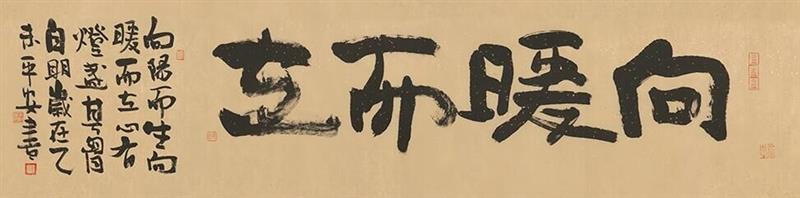 向暖而立
向陽而生向
暖而立心有
燈盞
自明歲在乙
未平安